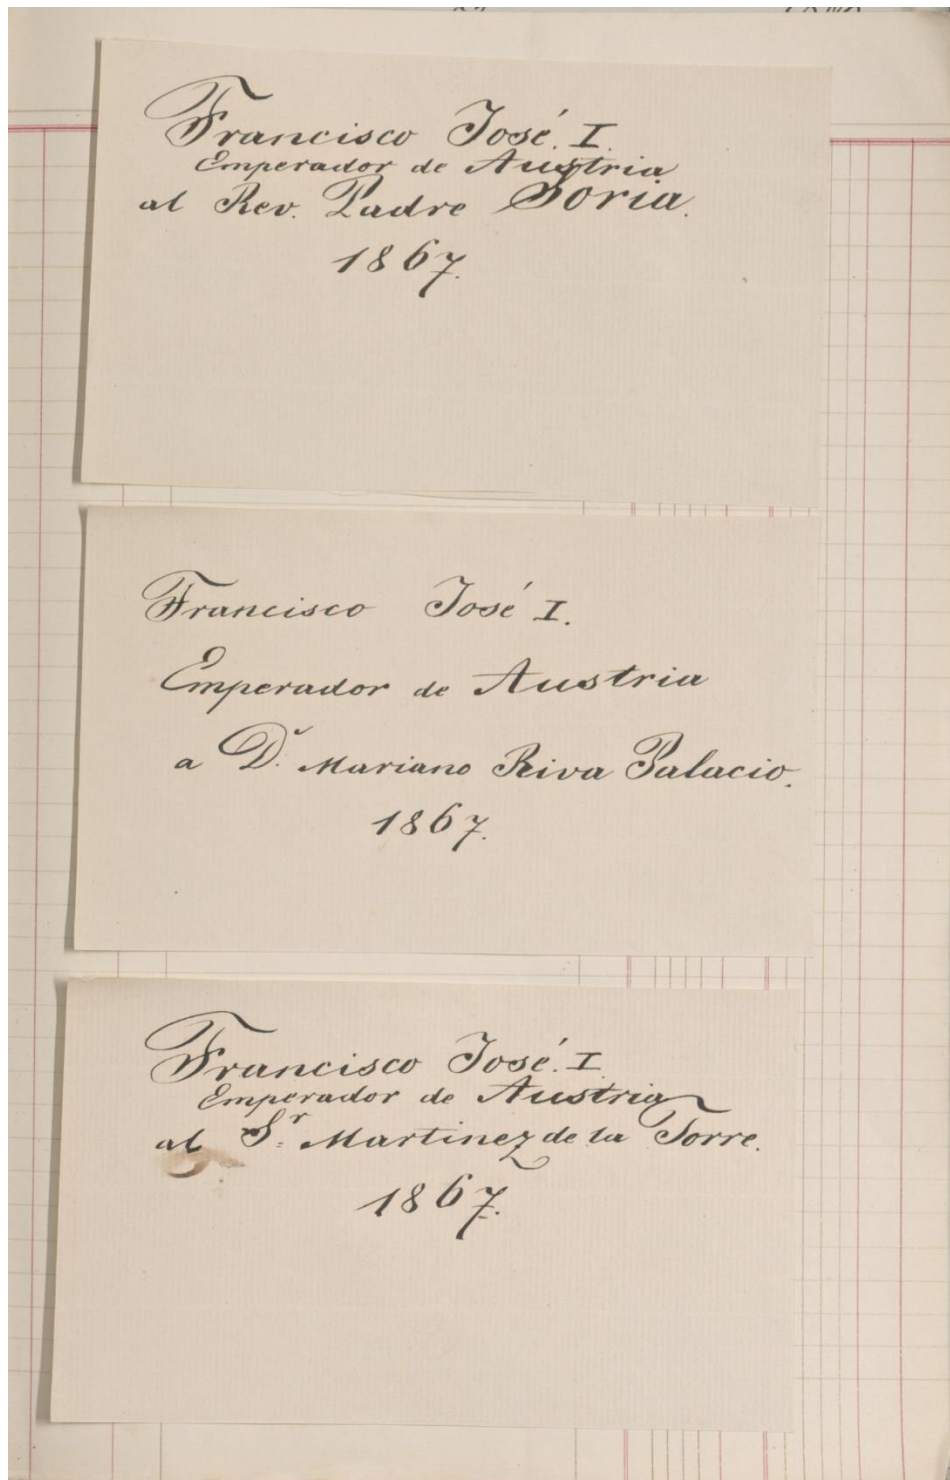 Francisco José. I.
Emperador de Austria
al Rev. Padre Soria.
1867.
Francisco José I.
Emperador de Austria
a D.ⁿ Mariano Riva Palacio.
1867.
Francisco José. I.
Emperador de Austria
al S.ʳ Martinez de la Torre.
1867.